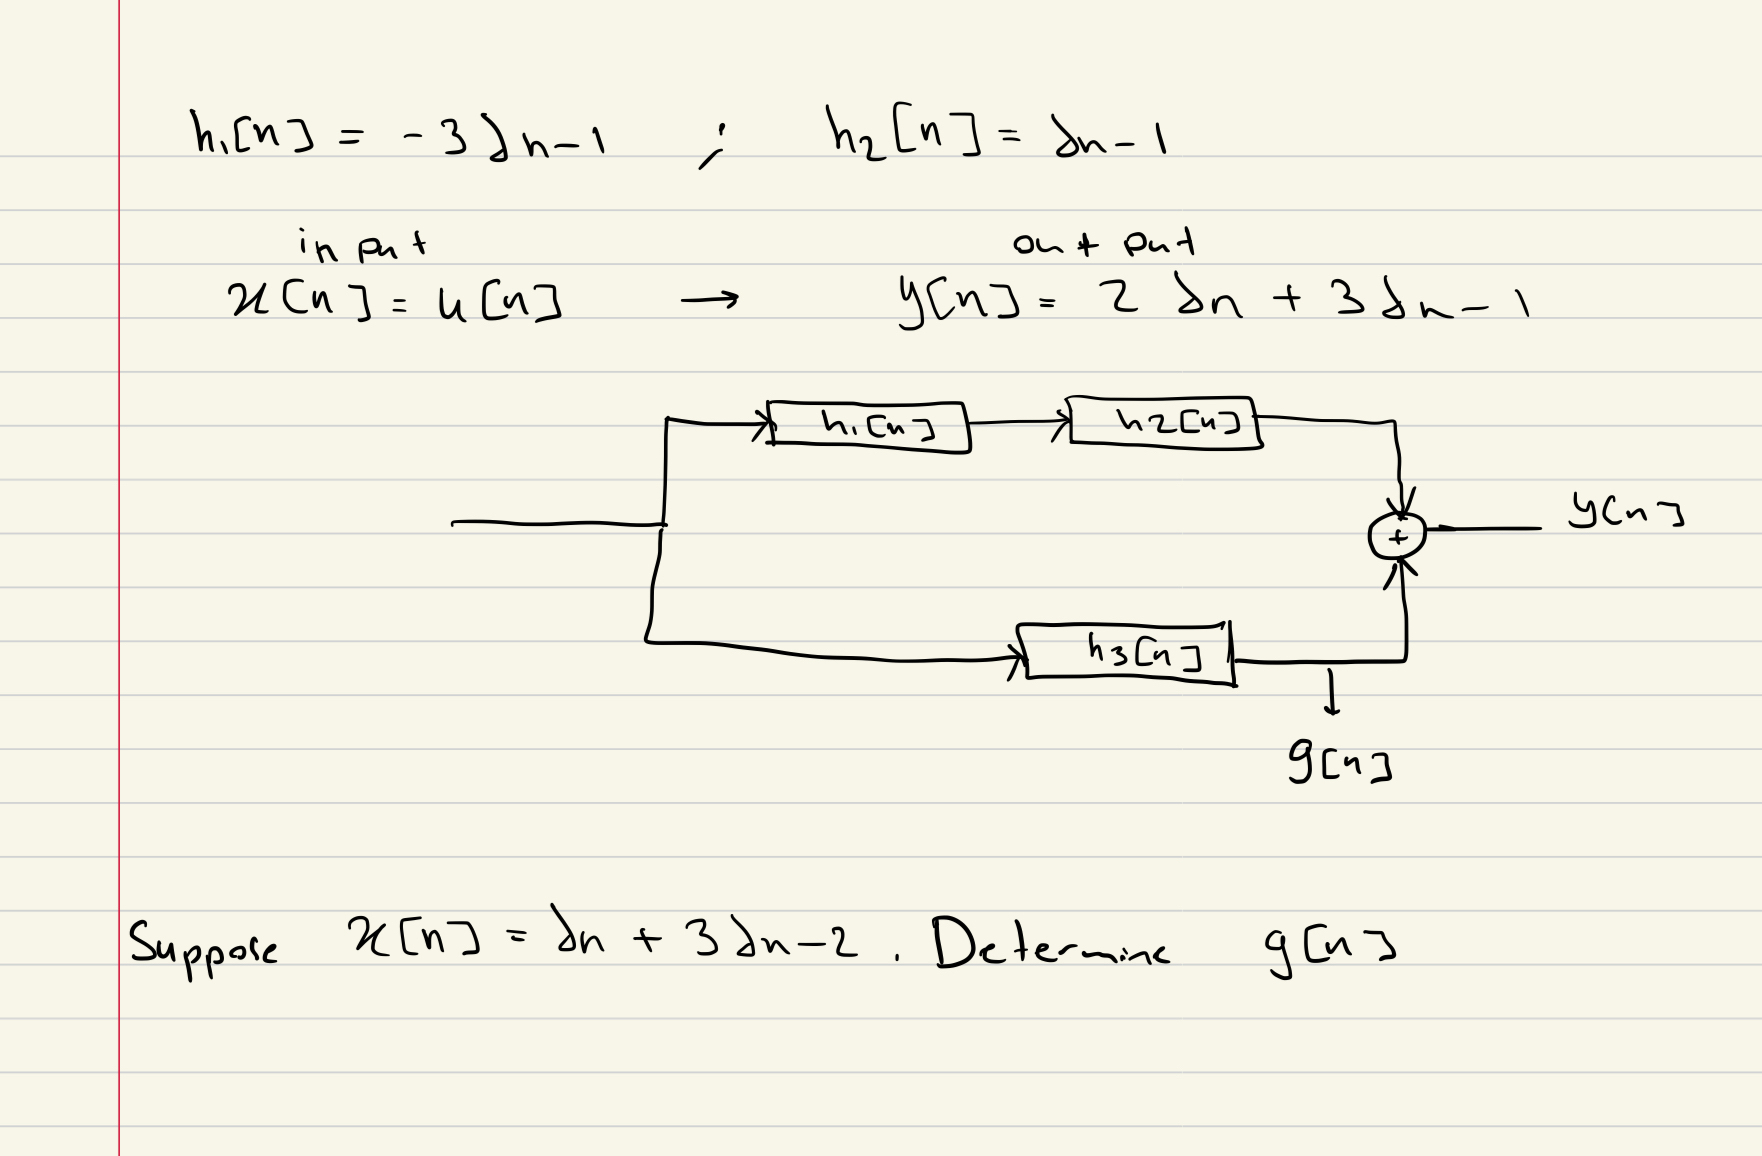 h₁[n] = -3 δn-1 ; h₂[n] = δn-1
input output
x[n] = u[n] → y[n] = 2 δn + 3 δn-1
h₁[n] h2[n]
y[n]
+
h3[n]
g[n]
Suppose x[n] = δn + 3 δn-2 . Determine g[n]